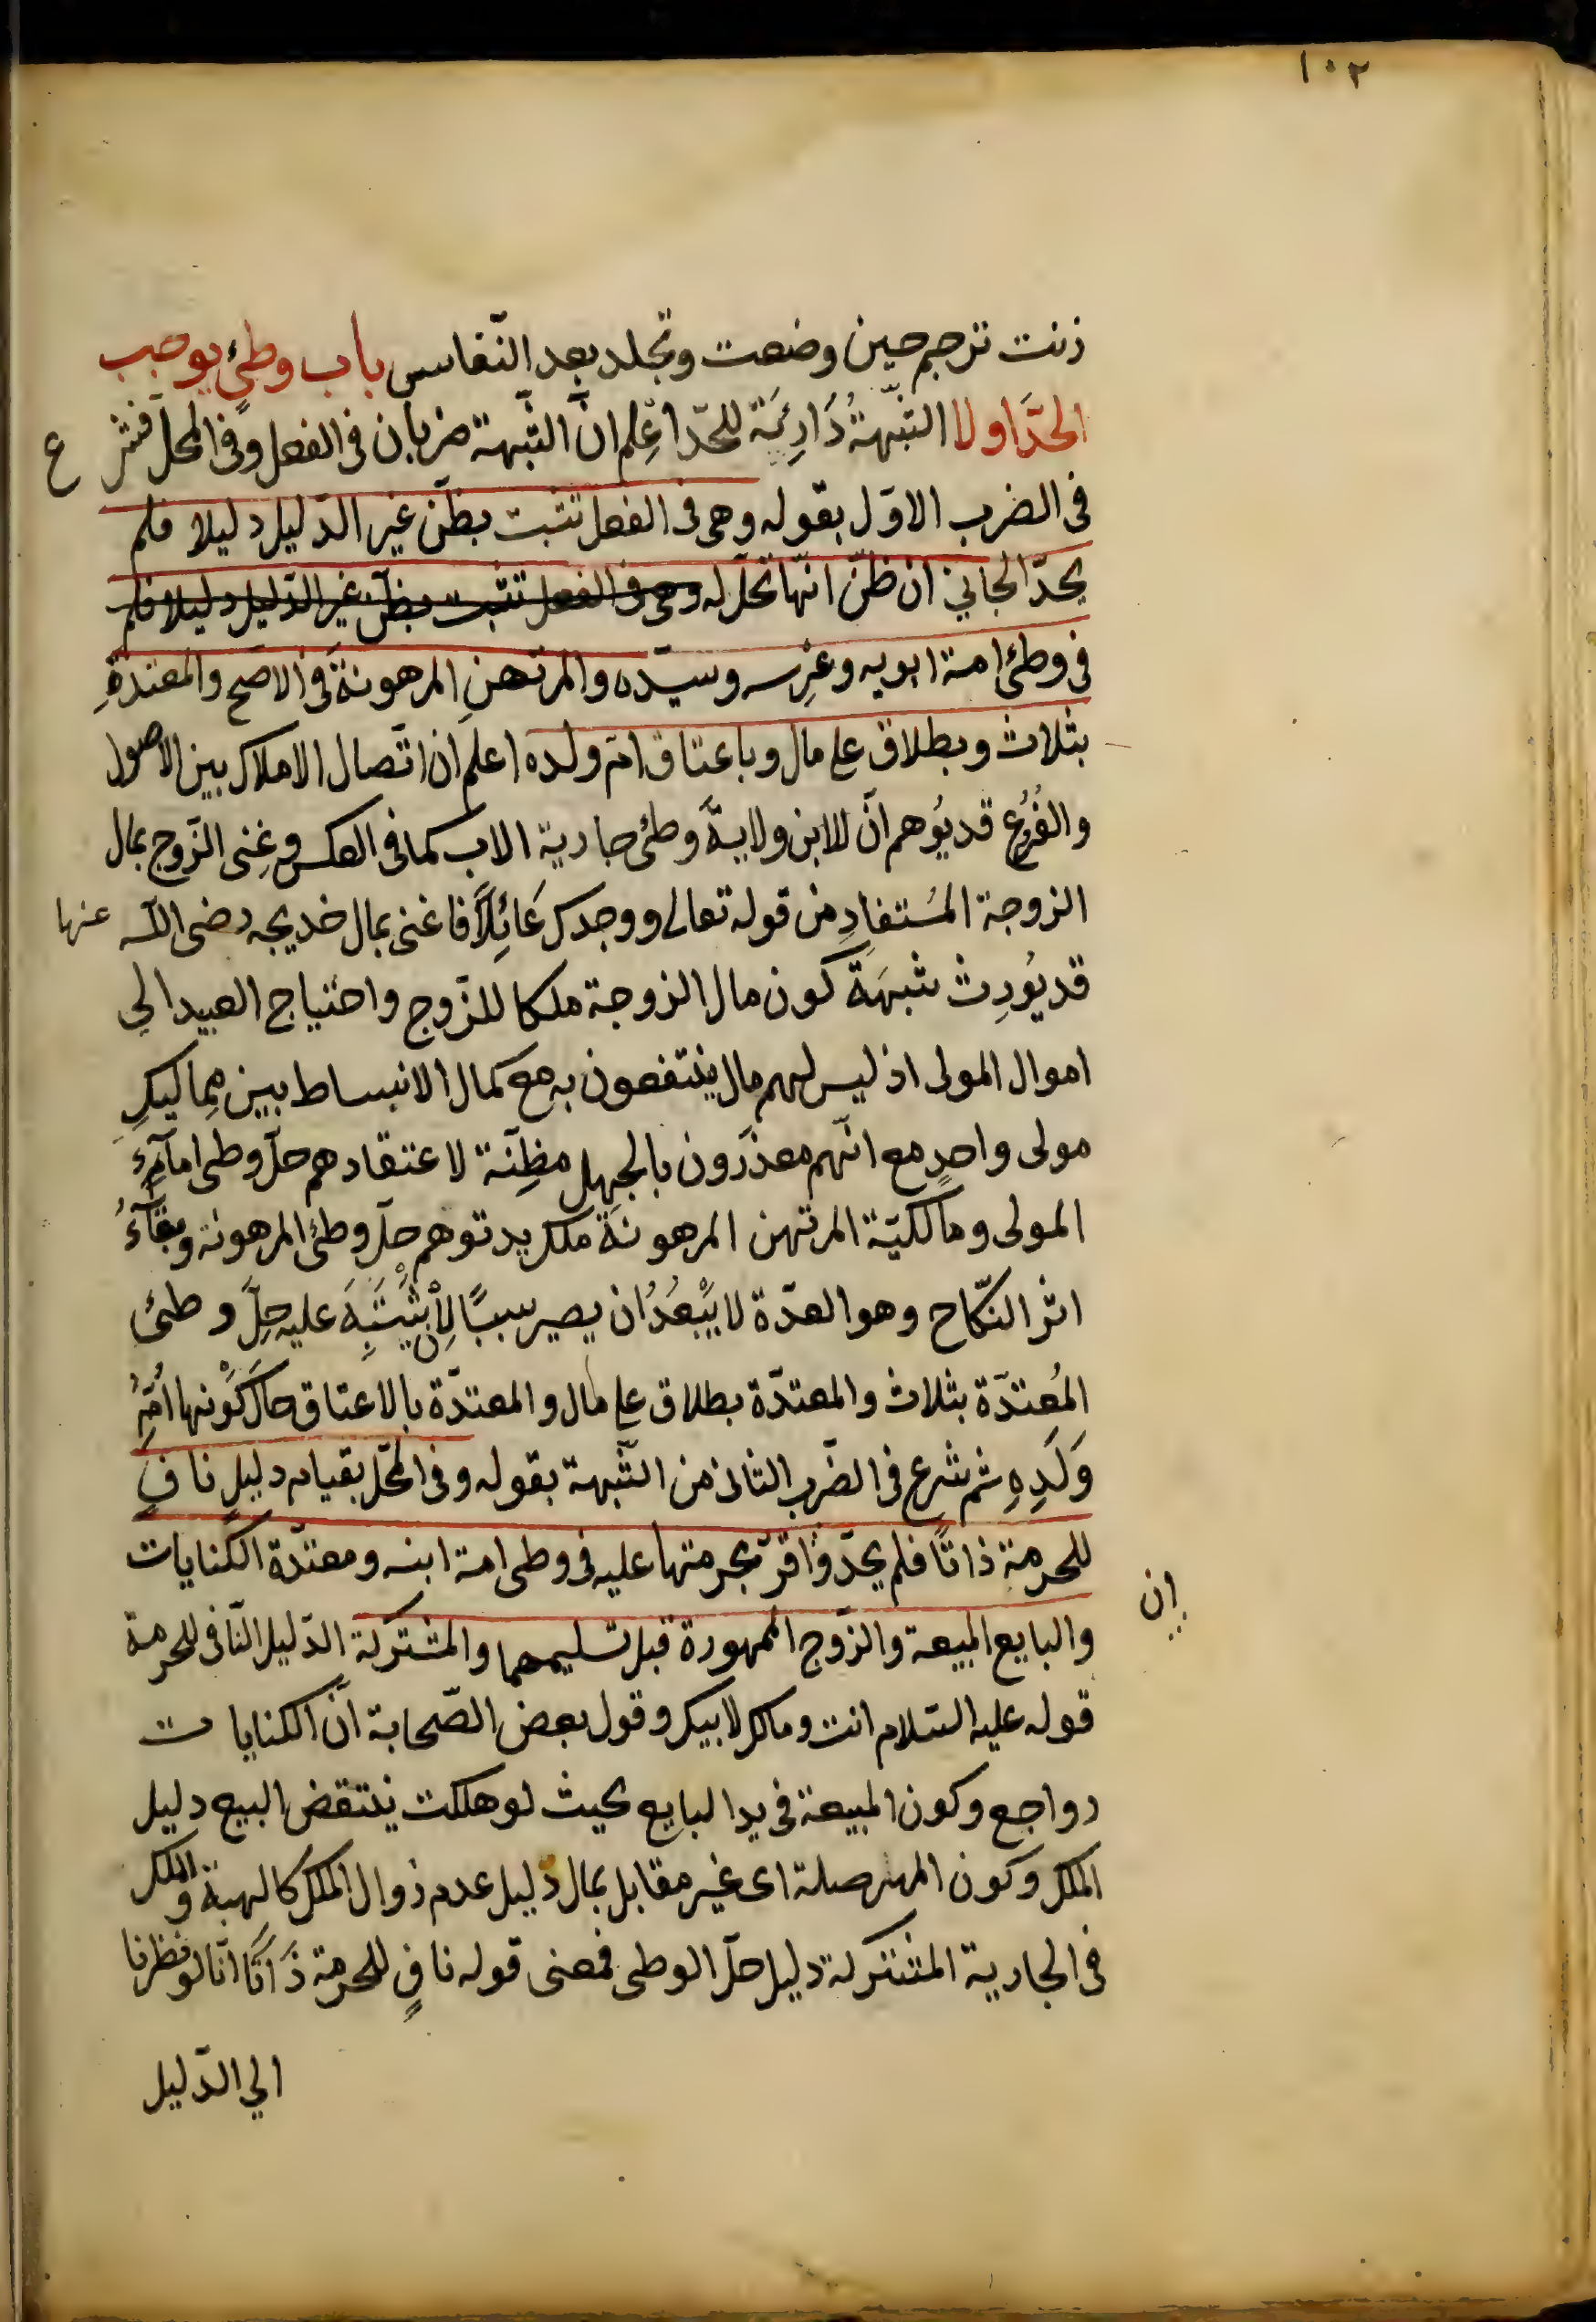 ١٠٢
زنت ترجم حين وضعت وتجلد بعد النّفاس باب وطئٍ يوجب
الحدَّ او لا الشّبهةُ دَارِئَة للحدّ اعْلم انّ الشّبهة ضربان فى الفعل وفى المحل فشر
ع
فى الضرب الاوّل بقوله وهى فى الفعل تثبت بظنّ غير الدّليل دليلا فلم
يحدّ الجاني ان ظنّ انّها تحلّ له وهى فى الفعل تثبت بظنّ غير الدّليل دليلا فلم
فى وطئ امة ابويه وعِرسه وسيّده والمرتهنِ المرهونةَ فى الاصح والمعتدّةِ
بثلاث وبطلاق على مال وباعتاق امّ ولده اعلم ان اتّصال الاملاك بين الاصول
والفُرُع قد يُوهم انّ للابن ولايةً وطئ جارية الاب كما فى العكس وغِنى الزّوج بمال
الزوجة المُستفادِ من قوله تعالى ووجدك عَائِلاً فاغنى بمال خديجه رضى اللّه عنها
قد يُورِث شبهَةَ كون مال الزوجة ملكا للزّوج واحتياج العبيد الي
اموال المولى اذ ليس لهم مال ينتفعون به مع كمال الانبساط بين مماليكِ
مولى واحدٍ مع انّهم معذرون بالجهل مظِنّة لاعتقادهم حلّ وطى امآءِ
المولى ومالكيّة المرتهن المرهونةَ ملك يد توهم حلّ وطئ المرهونه وبقآءُ
اثر النّكاح وهو العدّة لا يَبْعدُ ان يصير سببًا لِأنْ يَشْتَبِهَ عليه حِلّ وطئ
المُعتدّة بثلاث والمعتدّة بطلاق على مال والمعتدّة بالاعتاق حال كَوْنها اُمَّ
وَلَدِهِ ثم شرع فى الضّرب الثانى من الشّبهة بقوله وفى المحّل بقيام دليلٍ نافٍ
للحرمة ذاتًا فلم يحدّ واقرّ بحرمتها عليه فى وطى امة ابنه ومعتدّة الكنايات
إن
والبايع المبيعة والزّوج الممهورة قبل تسليمهما والمشتركة الدّليل النّافى للحرمة
قوله عليه السّلام انت ومالك لابيك وقول بعض الصّحابة انّ الكنايات
رواجع وكون المبيعة فى يد البايع بحيث لو هلكت ينتقض البيع دليل
الملك وكون المهر صلة اى غير مقابل بمال دليل عدم زوال الملك كالهبة والملك
فى الجارية المشتركة دليل حلّ الوطى فمعنى قوله نافٍ للحرمة ذَاتًا انّا لو نظرنا
الي الدّليل